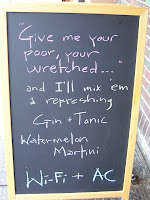 "Give me your
poor, your
wretched..."
and I'll mix 'em
a refreshing
Gin + Tonic
Watermelon
Martini
Wi-Fi + AC